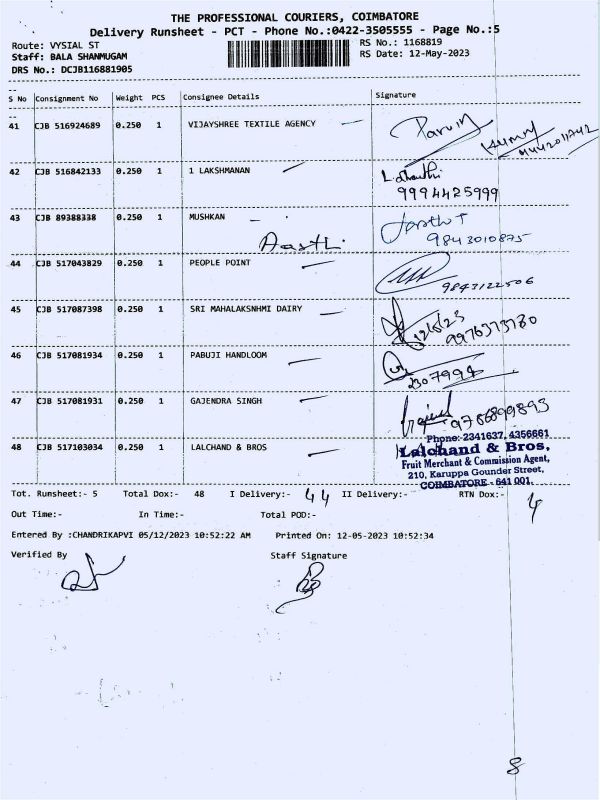 THE PROFESSIONAL COURIERS, COIMBATORE
Delivery Runsheet - PCT - Phone No.:0422-3505555 - Page No.:5
Route: VYSIAL ST RS No.: 1168819
Staff: BALA SHANMUGAM RS Date: 12-May-2023
DRS No.: DCJB116881905
S No Consignment No Weight PCS Consignee Details Signature
41 CJB 516924689 0.250 1 VIJAYSHREE TEXTILE AGENCY
42 CJB 516842133 0.250 1 1 LAKSHMANAN
9994425999
43 CJB 89388338 0.250 1 MUSHKAN
Aasthi 9843010875
44 CJB 517043829 0.250 1 PEOPLE POINT
9843122506
45 CJB 517087398 0.250 1 SRI MAHALAKSNHMI DAIRY
12/5/23
9976373780
46 CJB 517081934 0.250 1 PABUJI HANDLOOM
2307994
47 CJB 517081931 0.250 1 GAJENDRA SINGH
9786899893
Phone: 2341637, 4356661
48 CJB 517103034 0.250 1 LALCHAND & BROS Lalchand & Bros,
Fruit Merchant & Commission Agent,
210, Karuppa Gounder Street,
COIMBATORE - 641 001.
Tot. Runsheet:- 5 Total Dox:- 48 I Delivery:- 44 II Delivery:- RTN Dox:- 4
Out Time:- In Time:- Total POD:-
Entered By :CHANDRIKAPVI 05/12/2023 10:52:22 AM Printed On: 12-05-2023 10:52:34
Verified By Staff Signature
8